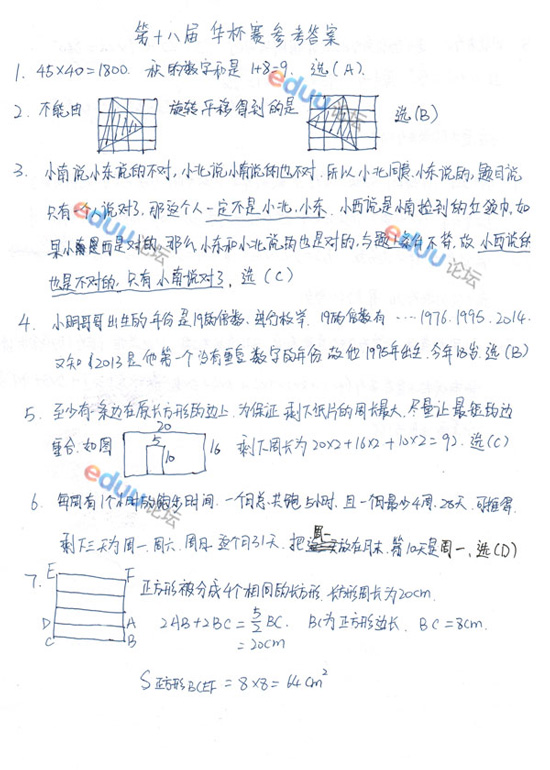 第十八届 华杯赛参考答案
1. 45×40=1800. 积的数字和是 1+8=9. 选(A).
2. 不能由 旋转平移得到的是 选(B)
3. 小南说小东说的不对,小北说小南说的也不对.所以小北同意小东说的,题目说
只有一个人说对了,那这个人一定不是小北,小东.小西说是小南捡到的红领巾,如
果小西是对的,那么小东和小北说的也是对的,与题干条件不符,故小西说的
也是不对的,只有小南说对了,选(C)
4. 小明哥哥出生的年份是19的倍数,进行枚举.19的倍数有 … 1976.1995.2014.
又知2013是他第一个没有重复数字的年份 故他1995年出生.今年18岁.选(B)
5. 至少有一条边在原长方形的边上.为保证剩下纸片的周长最大,尽量让最短的边
20
重合.如图 5 10 16 剩下周长为 20×2+16×2+10×2=92. 选(C)
6. 每周有1个小时的跑步时间.一个月总共跑5小时.且一个月最少4周.28天.可推得
剩下三天为周一.周六.周日.这个月31天.把周一放在月末.第10天是周一,选(D)
7. E F
正方形被分成4个相同的长方形.长方形周长为20cm.
D A 2AB+2BC=5/2BC. BC为正方形边长. BC=8cm.
C B =20cm
S正方形BCEF=8×8=64cm²
eduu论坛
eduu论坛
eduu论坛
eduu论坛